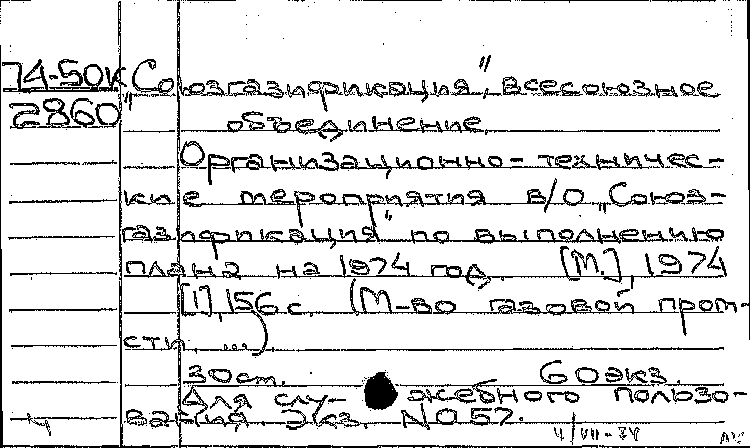 74-50к „Союзгазификация", всесоюзное
2860 объединение.
Организационно-техничес-
кие мероприятия в/о „Союз-
газификация" по выполнению
плана на 1974 год. [М.], 1974
[1], 156 с. (М-во газовой пром-
сти. ...).
30 см. 60 экз.
Для слу- жебного пользо-
вания. Экз. №057.
4/VII-74